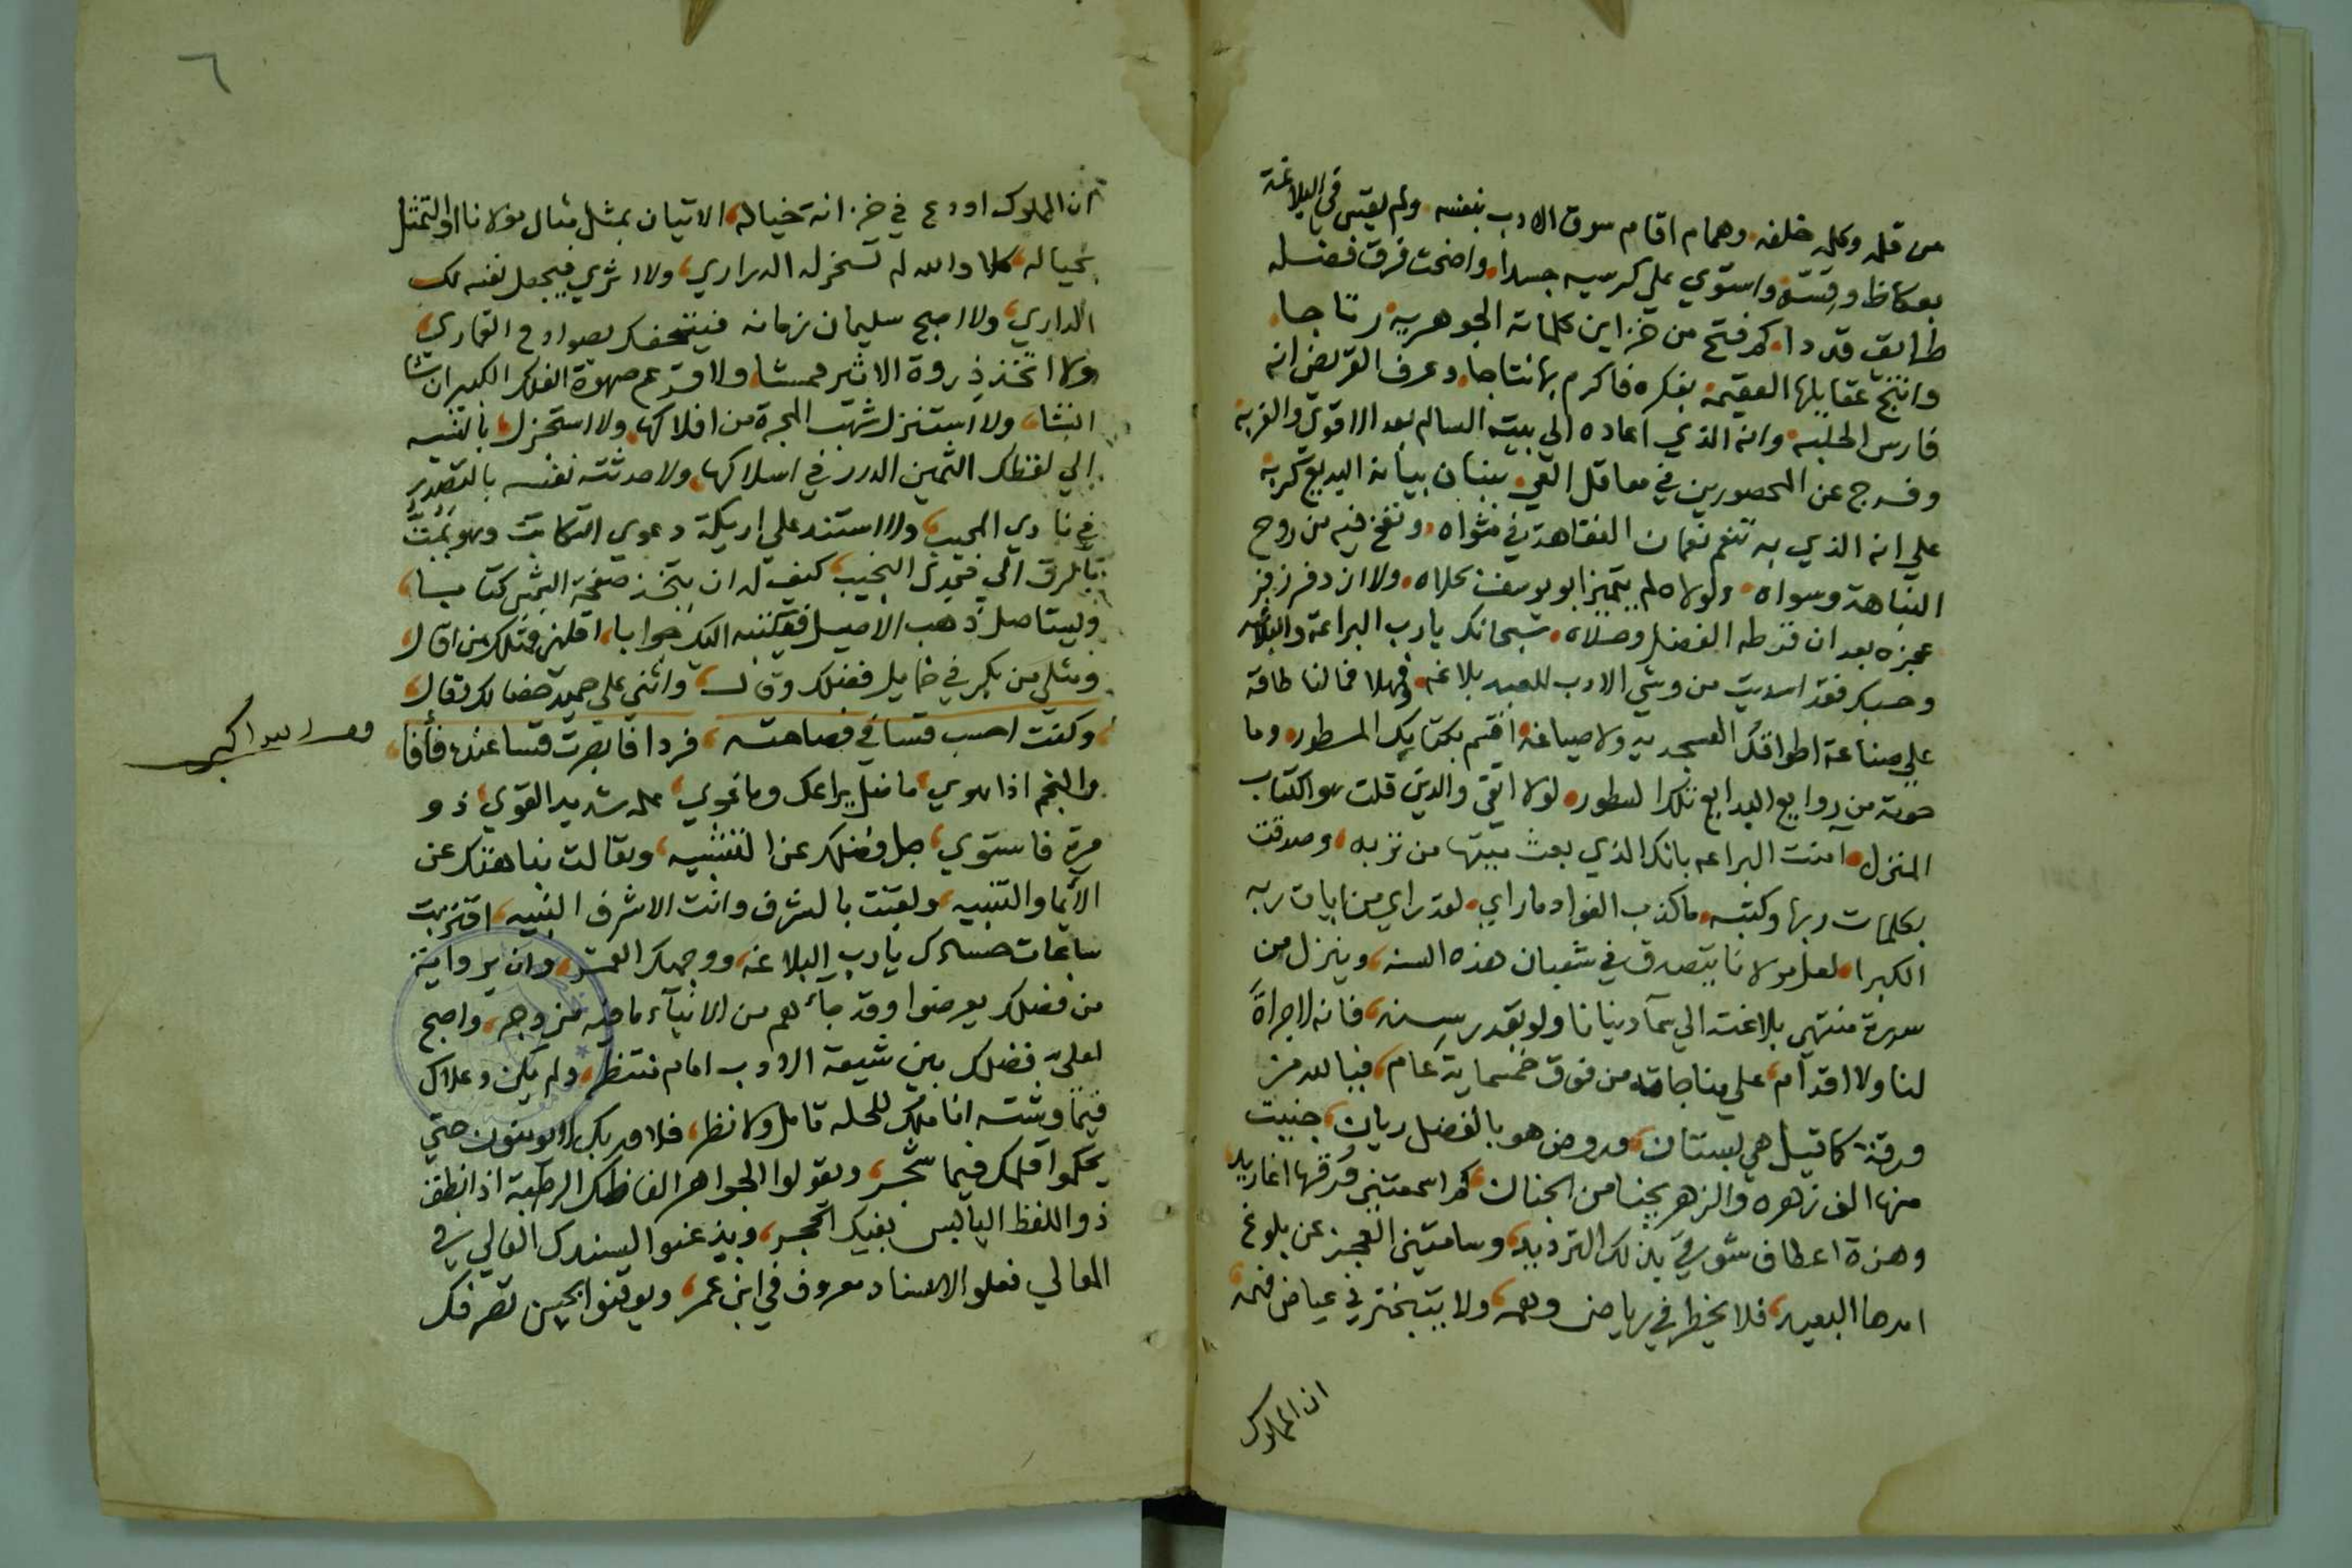 من قلمه وكلمه خلفه وهمام اقام سوق الادب بنفسه ولم يقس في البلاغة
بعكاظ وقسه واستوي علي كرسيه جسدا واضحت فرق فضله
طرايق قددا كم فتح من خزاين كلماته الجوهرية رتاجا
وانتج عقايلها العقيمة بفكره فاكرم بها نتاجا وعرف القريض انه
فارس الحلبه وانه الذي اعاده الي بيته السالم بعد الاقوي والغربه
وفرج عن المحصورين في معاقل العي ببنان بيانه البديع كربه
علي انه الذي به تنعم نعمان الفقاهة في مثواه ونفخ فيه من روح
النباهة وسواه ولولاه لم يتميز ابو يوسف بحلاه ولا ان دفر زفر
عجزه بعد ان قرطه الفضل وحلاه سبحانك يا رب البراعة والبلاغه
وحسبك فقد اسديت من وشي الادب للعبد بلاغه فمهلا فما لنا طاقة
علي صناعة اطواقك العسجديه ولا صياغه اقسم بكتابك المسطور وما
حوته من روايع البدايع تلك السطور لولا التقي والدين قلت هو الكتاب
المنزل امنت البراعه بانك الذي بعث بينها من ربه وصدقت
بكلمات ربها وكتبه ما كذب الفواد ما راي لقد راي من ايات ربه
الكبرا لعل مولانا يتصدق في شعبان هذه السنه وينزل من
سدرة منتهي بلاغته الي سمآ دينانا ولو بقدر سنه فانه لا جراة
لنا ولا اقدام علي مناجاته من فوق خمسماية عام فيا لله من
ورقة كما قيل هي بستان وروض هو بالفضل ريان جنيت
منها الف زهره والزهر يجنا من الجنان كم اسمعتني ورقها اغاريد
وهزة اعطاف شوقي بذلك الترديد وسامتني العجز عن بلوغ
امدها البعيد فلا يخطر في رياض وهمه ولا يتبختر في غياض فهمه
ان المملوك
٦
ان المملوك اودع في خزانة خياله الاتيان بمثل مثال مولانا او التمثل
بحياله كلا والله لم تسخر له الدراري ولا اثري فيجعل نفسه لك
الداري ولا اصبح سليمان زمانه فيتحفك بصوادح القماري
ولا اتخذ ذروة الاثير ممشا ولا اقترع صهوة الفلك الكبير ان شا
انشا ولا استنزل شهب المجرة من افلاكها ولا استجزل بالنسبه
الي لفظك الثمين الدرر في اسلاكها ولا حدثته نفسه بالتصدر
في نادي المجيب ولا استند علي اريكة دعوي الكتابة وهو يمت
بالرق الي النجيب كيف له ان يتخذ صفحة الشمس كتابا
وليستاصل ذهب الاصيل فيكتبه اليك جوابا اقلني فمثلك من اقال
ومثلي من بكر في خمايل فضلك وقال واثني علي حميد خصالك فقال
وكنت احسب قسا في فصاحته فردا فابصرت قسا عنده فأفا
والنجم اذا هوي ما ضل يراعك وما غوي علمه شديد القوي ذو
مرة فاستوي جل فضلك عن التشبيه وتعالت نباهتك عن
الايما والتنبيه ولقبت بالشرف وانت الاشرف النبيه اقتربت
ساعات حسدك يا رب البلاغه ووجهك القمر وان يروا اية
من فضلك يعرضوا وقد جآءهم من الانبآء ما فيه مزدجر واصبح
لعلي فضلك بين شيعة الادب امام منتظر ولم يكن وعلاك
فيما وشته اناملك للحله تامل ولا نظر فلا وربك لا يومنون حتي
يحكموا قلمك فيما شجر ويقولوا لجواهر الفاظك الرطبة اذا نطق
ذو اللفظ اليابس بفيك الحجر ويذعنوا لسندك العالي في
المعالي فعلو الاسناد معروف في ابن عمر ويوقنوا بحسن تصرفك
الله اكبر